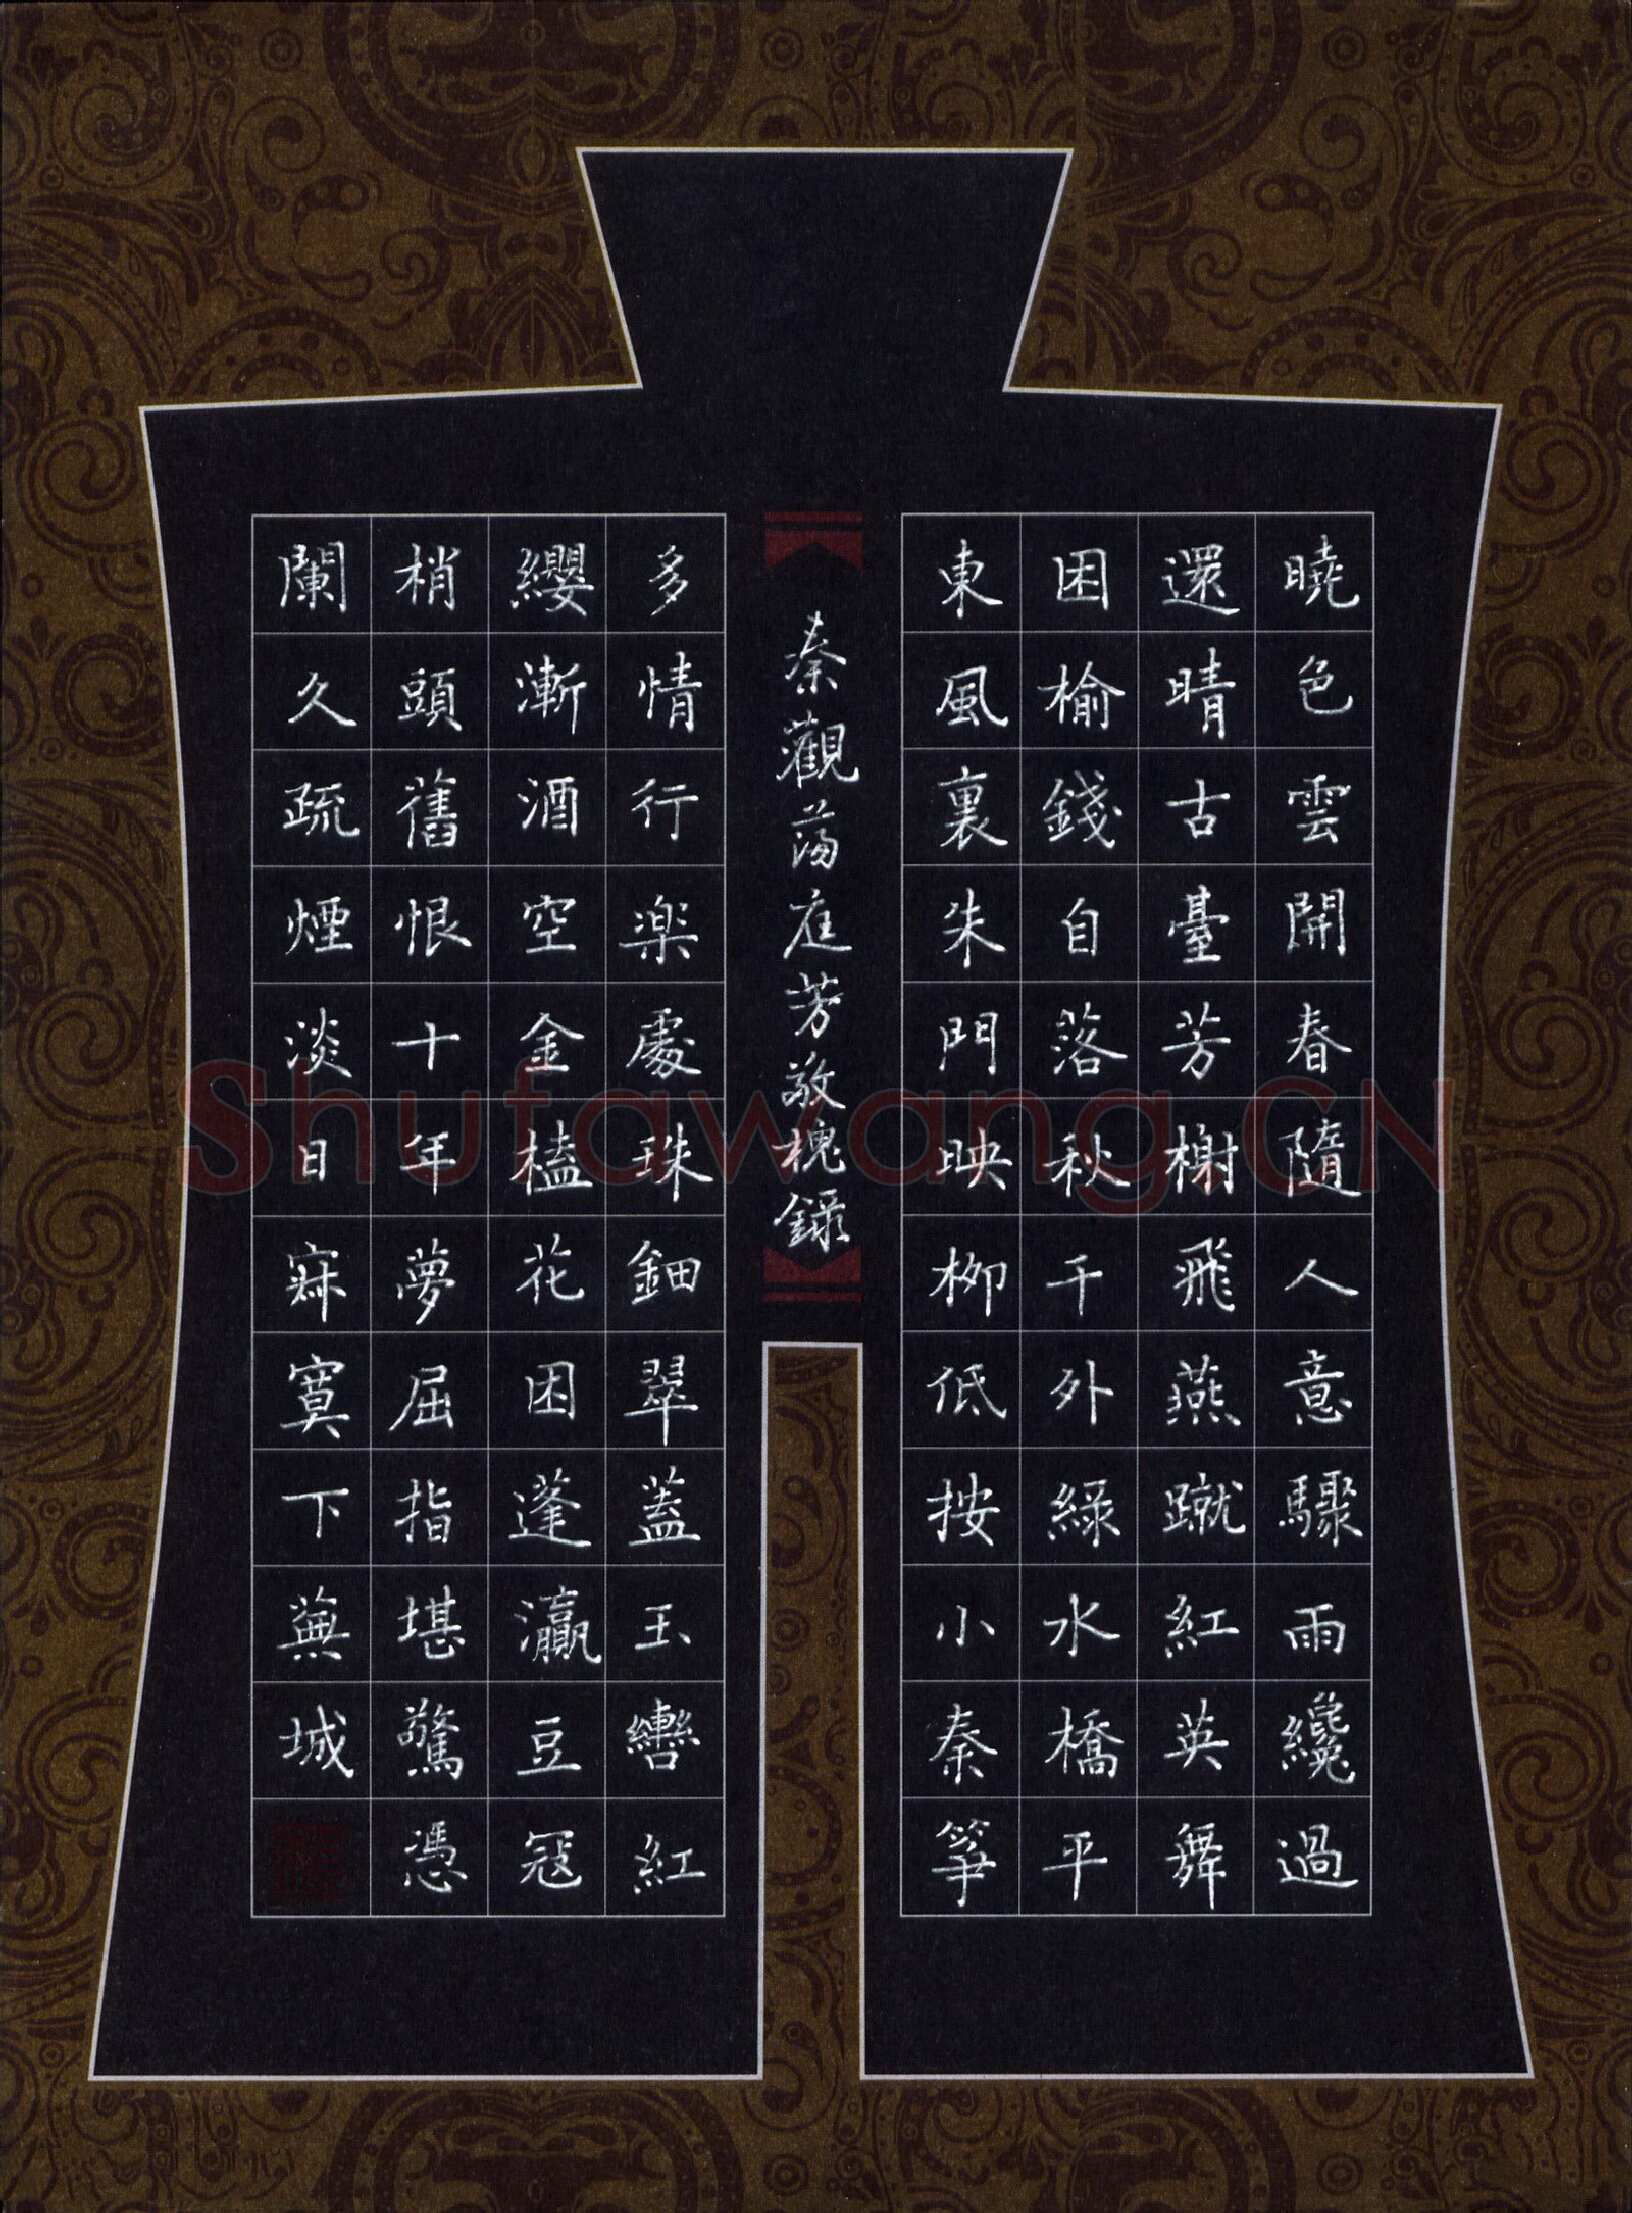 曉色雲開春隨人意驟雨纔過
還晴古臺芳榭飛燕蹴紅英舞
困榆錢自落秋千外綠水橋平
東風裏朱門映柳低按小秦箏
秦觀蕩庭芳敬槐錄
多情行楽處珠鈿翠蓋玉轡紅
纓漸酒空金榼花困蓬瀛豆冦
梢頭舊恨十年夢屈指堪驚憑
闌久疏煙淡日寂寞下蕪城
Shufawang.CN